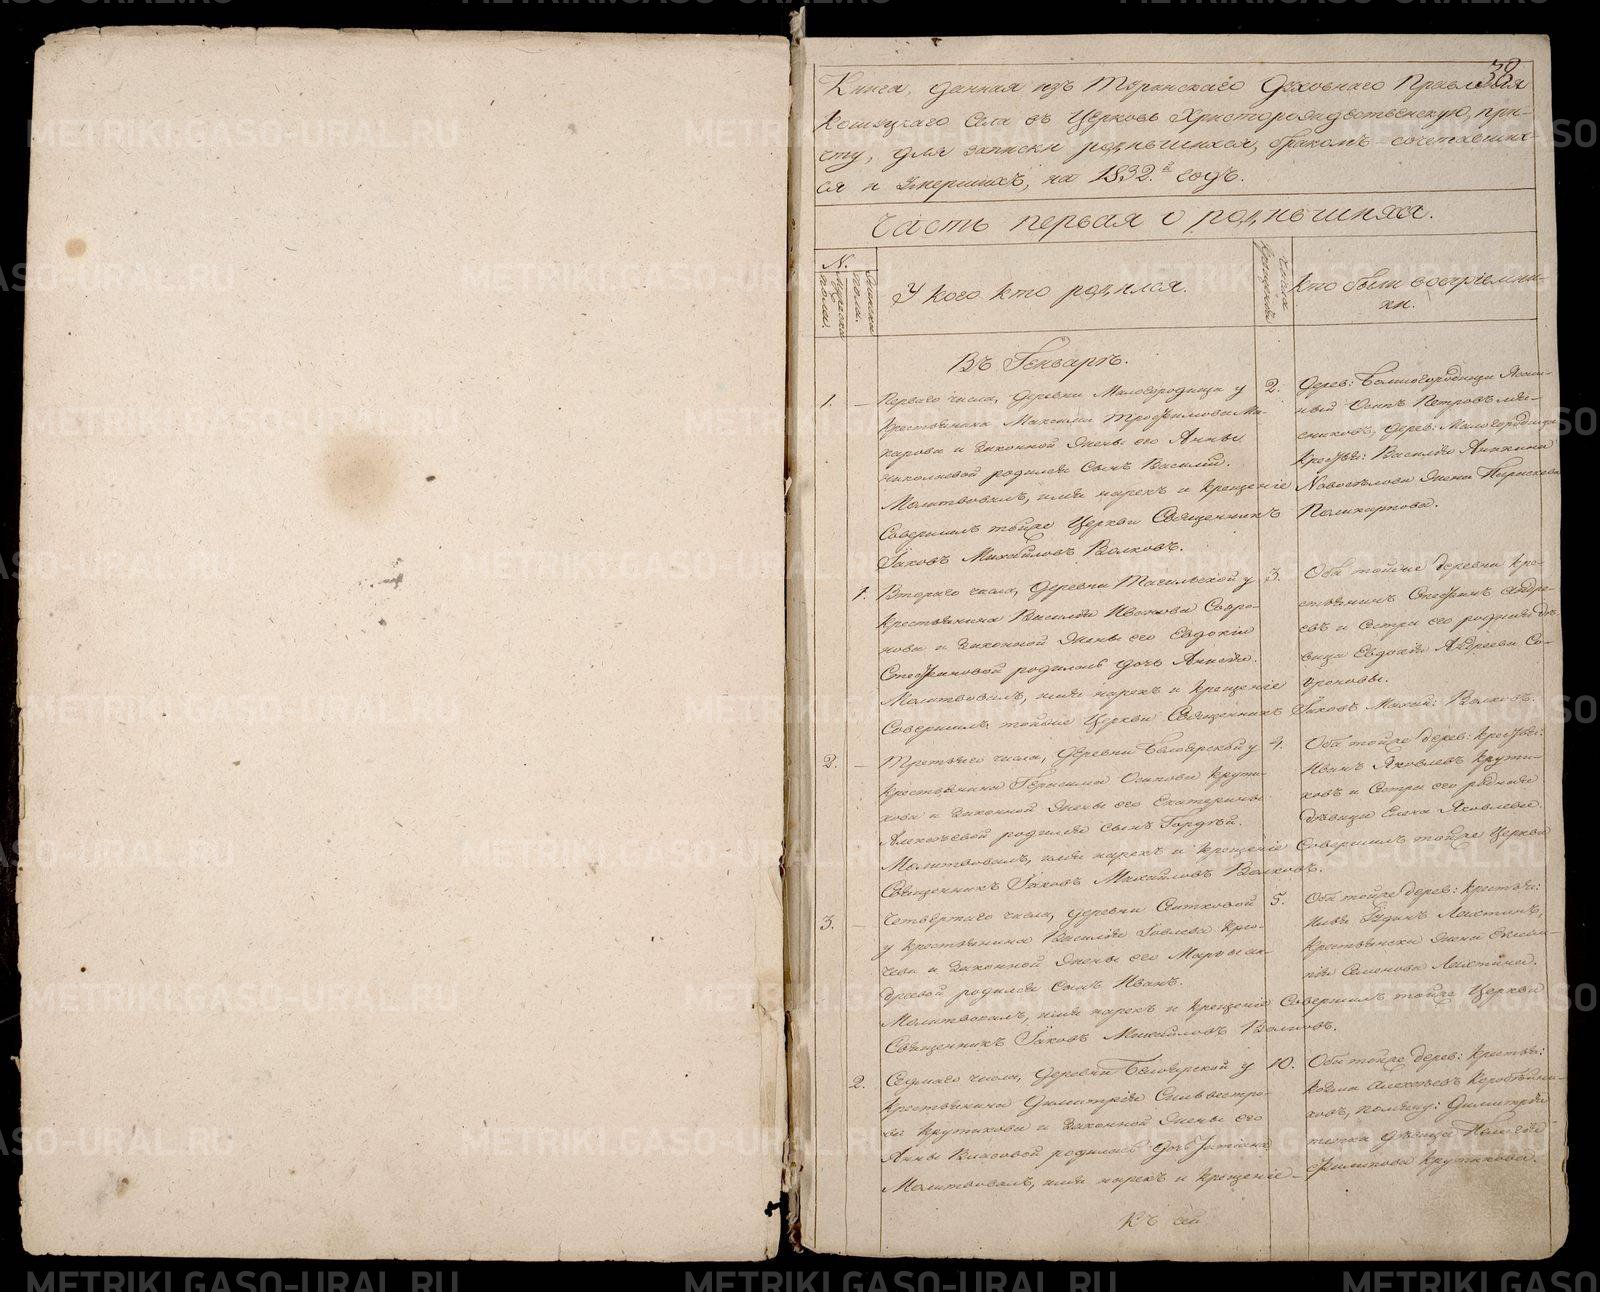 38
Книга, данная изъ Туринскаго Духовнаго Правленія
Кошуцкаго Села въ Церковь Христорождественскую, при-
чту, для записки родившихся, бракомъ сочетавших-
ся и умершихъ, на 1832й годъ.
Часть первая о родившихся.
N.
мужеска пола.
женска пола.
У кого кто родился.
Числа крещенія
Кто были воспріемни-
ки.
Въ Генварѣ.
1. Перваго числа, деревни Малогородища у
крестьянина Максима Трофимова Ма-
карова и законной жены его Анны
Николаевой родился сынъ Василій.
Молитвовалъ, имя нарекъ и крещеніе
Совершилъ тойже Церкви Священникъ
Іаковъ Михайловъ Волковъ.
2. Дерев:
Осипъ Петровъ
дерев: Малогородища
крестьян: Василія
Новоселова жена Параскева
Поликарпова.
1. Втораго числа, деревни Тагильской у
крестьянина Василія Иванова Сафро-
нова и законной жены его Евдокіи
Стефановой родилась дочь Анисія.
Молитвовалъ, имя нарекъ и крещеніе
Совершилъ тойже Церкви Священникъ Іаковъ Михай: Волковъ.
3. Оба тойже деревни кре-
стьянинъ Стефанъ Андре-
евъ и сестра его родная дѣ-
вица Евдокія Андреева Со-
фроновы.
2. Третьяго числа, деревни Белоярской у
крестьянина Герасима Осипова Крути-
кова и законной жены его Екатерины
Алексѣевой родился сынъ Гордѣй.
Молитвовалъ, имя нарекъ и крещеніе Совершилъ тойже Церкви
Священникъ Іаковъ Михайловъ Волковъ.
4. Оба тойже дерев: крестьян:
Иванъ Яковлевъ Крути-
ковъ и сестра его родная
дѣвица Елена Яковлева.
3. Четвертаго числа, деревни Ситковой
у крестьянина Василія
и законной жены его
родился сынъ Иванъ.
Молитвовалъ, имя нарекъ и крещеніе Совершилъ тойже Церкви
Священникъ Іаковъ Михайловъ Волковъ.
5. Оба тойже дерев: крестьян:
Илья
крестьянска жена
Семенова
2. Седмаго числа, деревни Белоярской у
крестьянина Димитрія Сильвестро-
ва Крутикова и законной жены его
Анны Власовой родилась дочь Татіана
Молитвовалъ, имя нарекъ и крещеніе-
10. Оба тойже дерев: крестьян:
Козма Алексѣевъ Коробейни-
ковъ, Димитрія
тетка дѣвица Пелагія
Филипова Крутикова.
Къ сей
METRIKI.GASO-URAL.RU